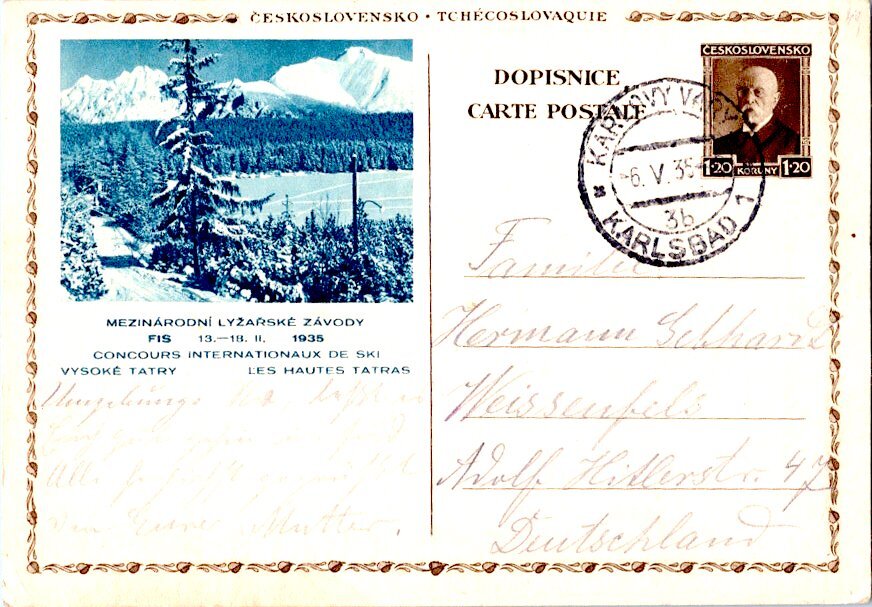 ČESKOSLOVENSKO • TCHÉCOSLOVAQUIE
DOPISNICE
CARTE POSTALE
ČESKOSLOVENSKO
1·20 KORUNY 1·20
KARLOVY VARY
6. V. 35
3b
KARLSBAD 1
MEZINÁRODNÍ LYŽAŘSKÉ ZÁVODY
FIS 13.–18. II. 1935
CONCOURS INTERNATIONAUX DE SKI
VYSOKÉ TATRY LES HAUTES TATRAS
Umgebungs
Alle
Von Eurer Mutter.
Familie
Hermann Gebhardt
Weissenfels
Adolf Hitlerstr. 47
Deutschland